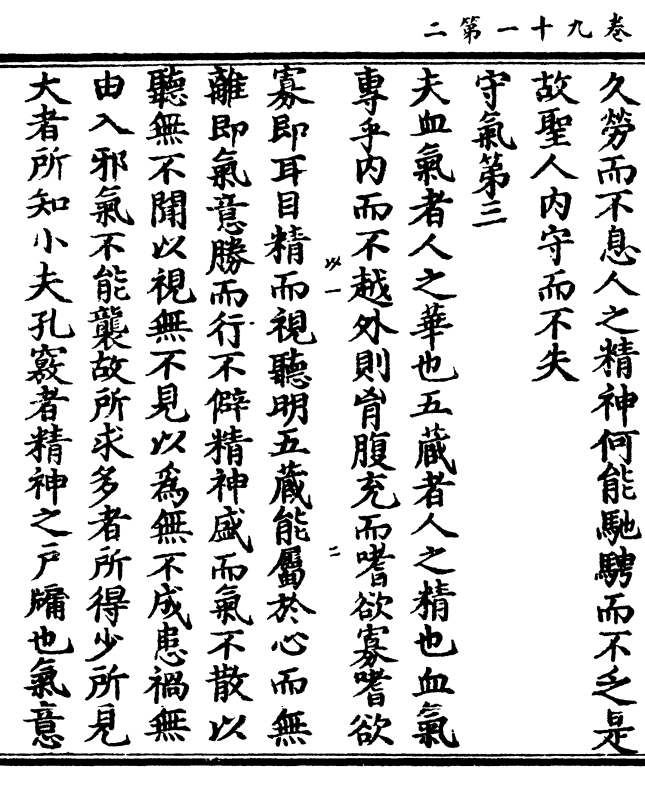 卷九十一第二
久勞而不息人之精神何能馳騁而不乏是
故聖人内守而不失
守氣第三
夫血氣者人之華也五蔵者人之精也血氣
專乎内而不越外則胷腹充而嗜欲寡嗜欲
寡即耳目精而視聽明五蔵能屬於心而無
離即氣意勝而行不僻精神盛而氣不散以
聽無不聞以視無不見以為無不成患禍無
由入邪氣不能襲故所求多者所得少所見
大者所知小夫孔竅者精神之戸牖也氣意
以一
二